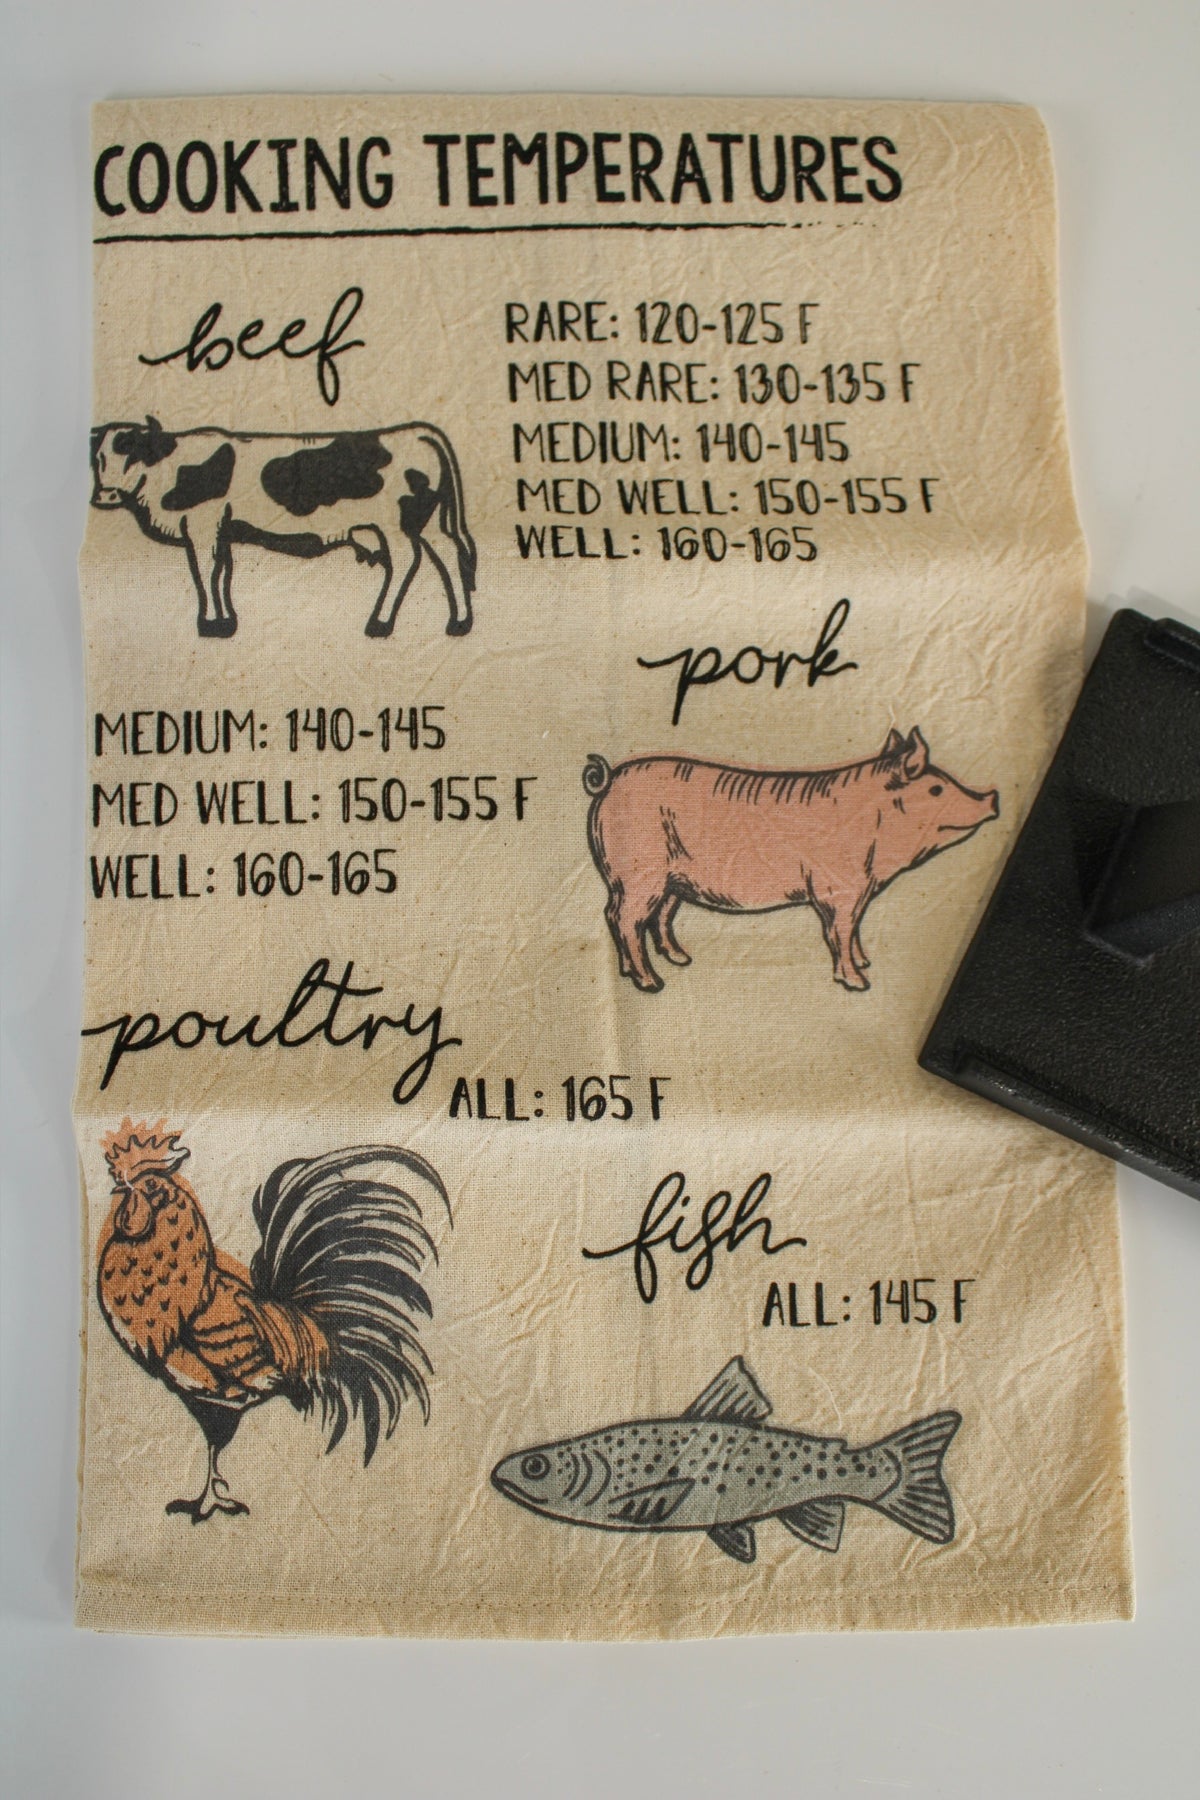 COOKING TEMPERATURES
beef
RARE: 120-125 F
MED RARE: 130-135 F
MEDIUM: 140-145
MED WELL: 150-155 F
WELL: 160-165
pork
MEDIUM: 140-145
MED WELL: 150-155 F
WELL: 160-165
poultry
ALL: 165 F
fish
ALL: 145 F